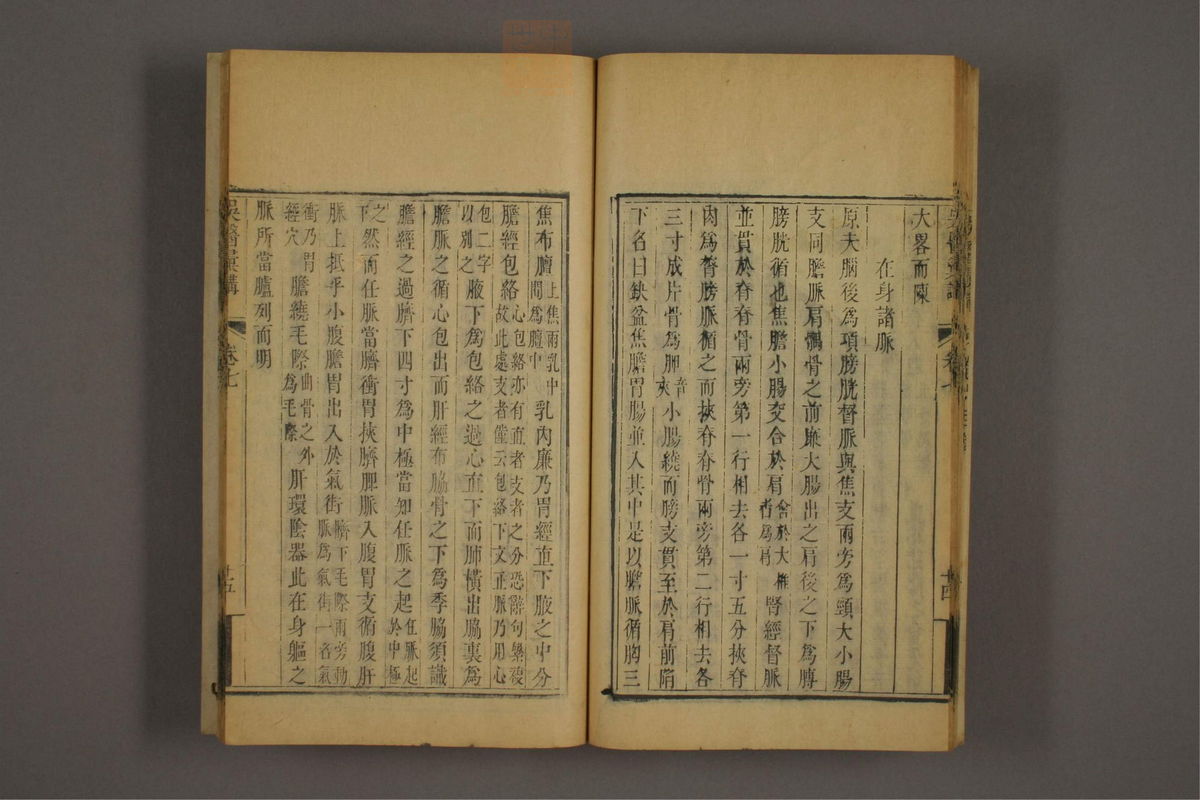 大畧而陳
在身諸脈
原夫腦後爲項膀胱督脈與焦支兩旁爲頸大小腸
支同膽脈肩髃骨之前廉大腸出之肩後之下爲膊
膀胱循也焦膽小腸交合於肩會於大椎者爲肩腎經督脈
並貫於脊脊骨兩旁第一行相去各一寸五分挾脊
肉爲膂膀脈循之而挾脊脊骨兩旁第二行相去各
三寸成片骨爲胛音夾小腸繞而膀支貫至於肩前陷
下名曰缺盆焦膽胃腸並入其中是以膽脈循胸三
焦布膻上焦兩乳中間爲膻中乳內廉乃胃經直下腋之中分
膽經包絡心包絡亦有直者支者之分恐辭句纍複故此處支者僅云包絡下文正脈乃用心
包二字以別之腋下爲包絡之過心直下而肺橫出脇裏爲
膽脈之循心包出而肝經布脇骨之下爲季脇須識
膽經之過臍下四寸爲中極當知任脈之起任脈起於中極
之下然而任脈當臍衝胃挾臍脾脈入腹胃支循腹肝
脈上抵乎小腹膽胃出入於氣街臍下毛際兩旁動脈爲氣街一名氣
衝乃胃經穴膽繞毛際曲骨之外爲毛際肝環陰器此在身軀之
脈所當臚列而明
吳醫彚講
卷七
十五
卷七
十四